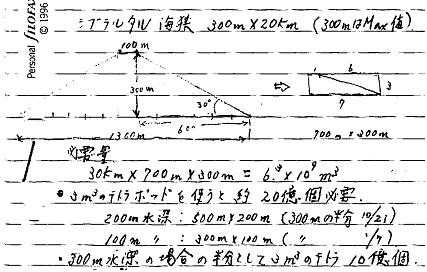 ジブラルタル 海狭 300m×20Km (300mはMax値)
Personal fILOFAX
© 1996
100m
300m
30°
600
1300m
⇨
1
6
3
7
700m × 300m
必要量
30Km × 700m × 300m = 6.3 × 10⁹ m³
• 3m³のテトラポッドを使うと 約 20億.個必要.
200m水深: 500m×200m (300mの半分 10/21)
100m 〃 : 300m×100m ( 〃 1/7)
• 300m水深の場合の半分として 3m³のテトラ 10億.個.